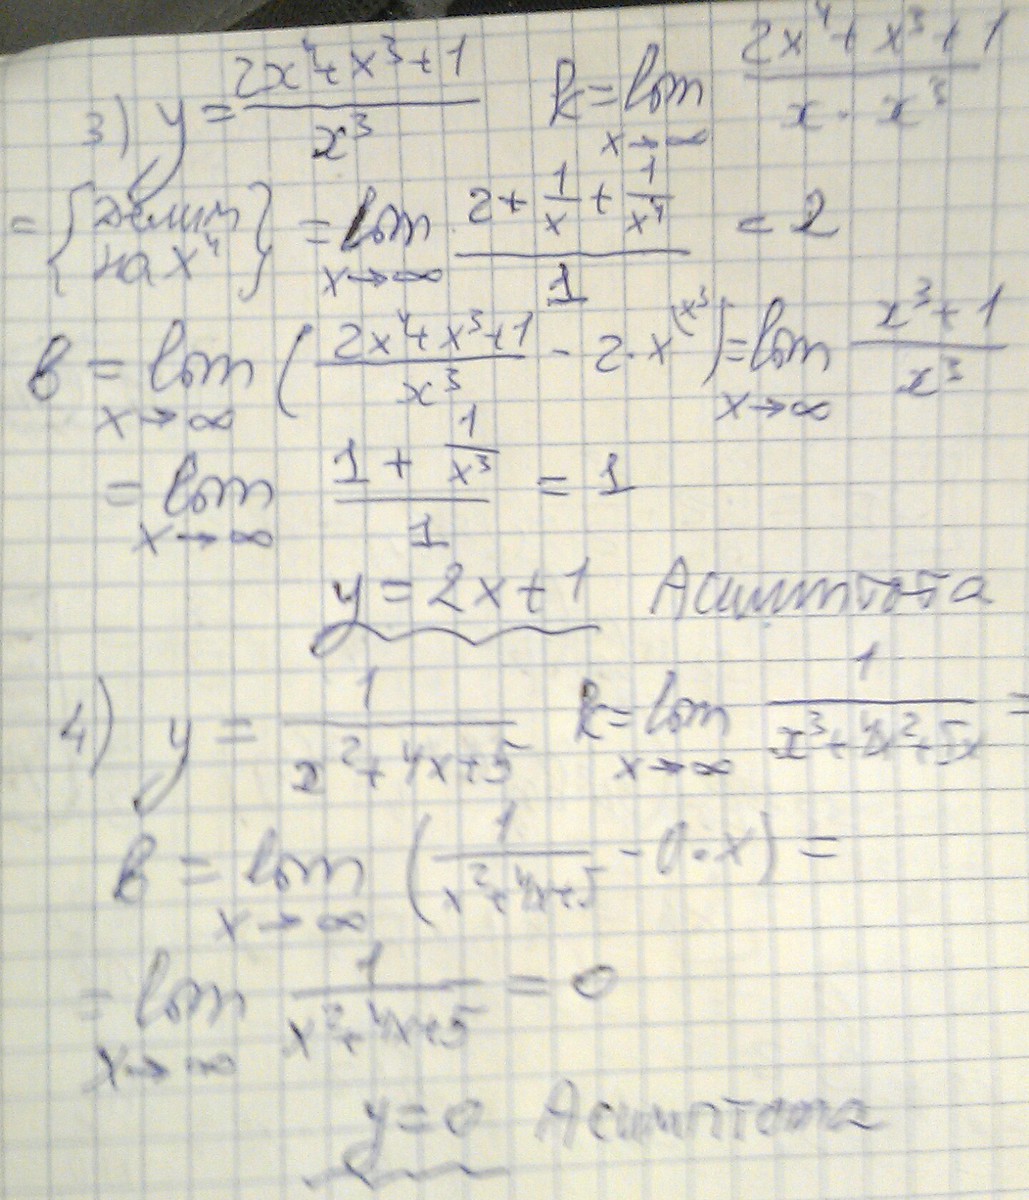 3) y = (2x⁴+x³+1)/x³   k = lim x→∞ (2x⁴+x³+1)/(x·x³)
= {делим на x⁴} = lim x→∞ (2 + 1/x + 1/x⁴)/1 = 2
b = lim x→∞ ((2x⁴+x³+1)/x³ - 2·x^(x³) ) = lim x→∞ (x³+1)/x³
= lim x→∞ (1 + 1/x³)/1 = 1
y = 2x+1 Асимптота
4) y = 1/(x²+4x+5)   k = lim x→∞ 1/(x³+4x²+5x) =
b = lim x→∞ (1/(x²+4x+5) - 0·x) =
= lim x→∞ 1/(x²+4x+5) = 0
y=0 Асимптота